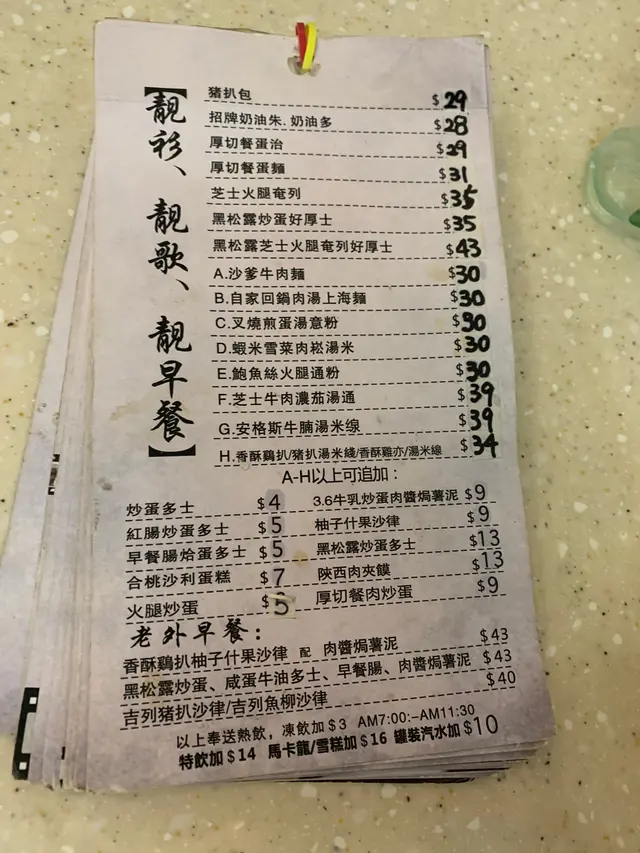 【靚衫、靚歌、靚早餐】
豬扒包 $29
招牌奶油朱.奶油多 $28
厚切餐蛋治 $29
厚切餐蛋麵 $31
芝士火腿奄列 $35
黑松露炒蛋好厚士 $35
黑松露芝士火腿奄列好厚士 $43
A.沙爹牛肉麵 $30
B.自家回鍋肉湯上海麵 $30
C.叉燒煎蛋湯意粉 $30
D.蝦米雪菜肉崧湯米 $30
E.鮑魚絲火腿通粉 $30
F.芝士牛肉濃茄湯通 $39
G.安格斯牛腩湯米缐 $39
H.香酥鷄扒/豬扒湯米綫/香酥雞亦/湯米線 $34
A-H以上可追加：
炒蛋多士 $4 3.6牛乳炒蛋肉醬焗薯泥 $9
紅腸炒蛋多士 $5 柚子什果沙律 $9
早餐腸烚蛋多士 $5 黑松露炒蛋多士 $13
合桃沙利蛋糕 $7 陝西肉夾饃 $13
火腿炒蛋 $5 厚切餐肉炒蛋 $9
老外早餐：
香酥鷄扒柚子什果沙律 配 肉醬焗薯泥 $43
黑松露炒蛋、咸蛋牛油多士、早餐腸、肉醬焗薯泥 $43
吉列豬扒沙律/吉列魚柳沙律 $40
以上奉送熱飲，凍飲加$3 AM7:00:–AM11:30
特飲加$14 馬卡龍/雪糕加$16 罐裝汽水加$10